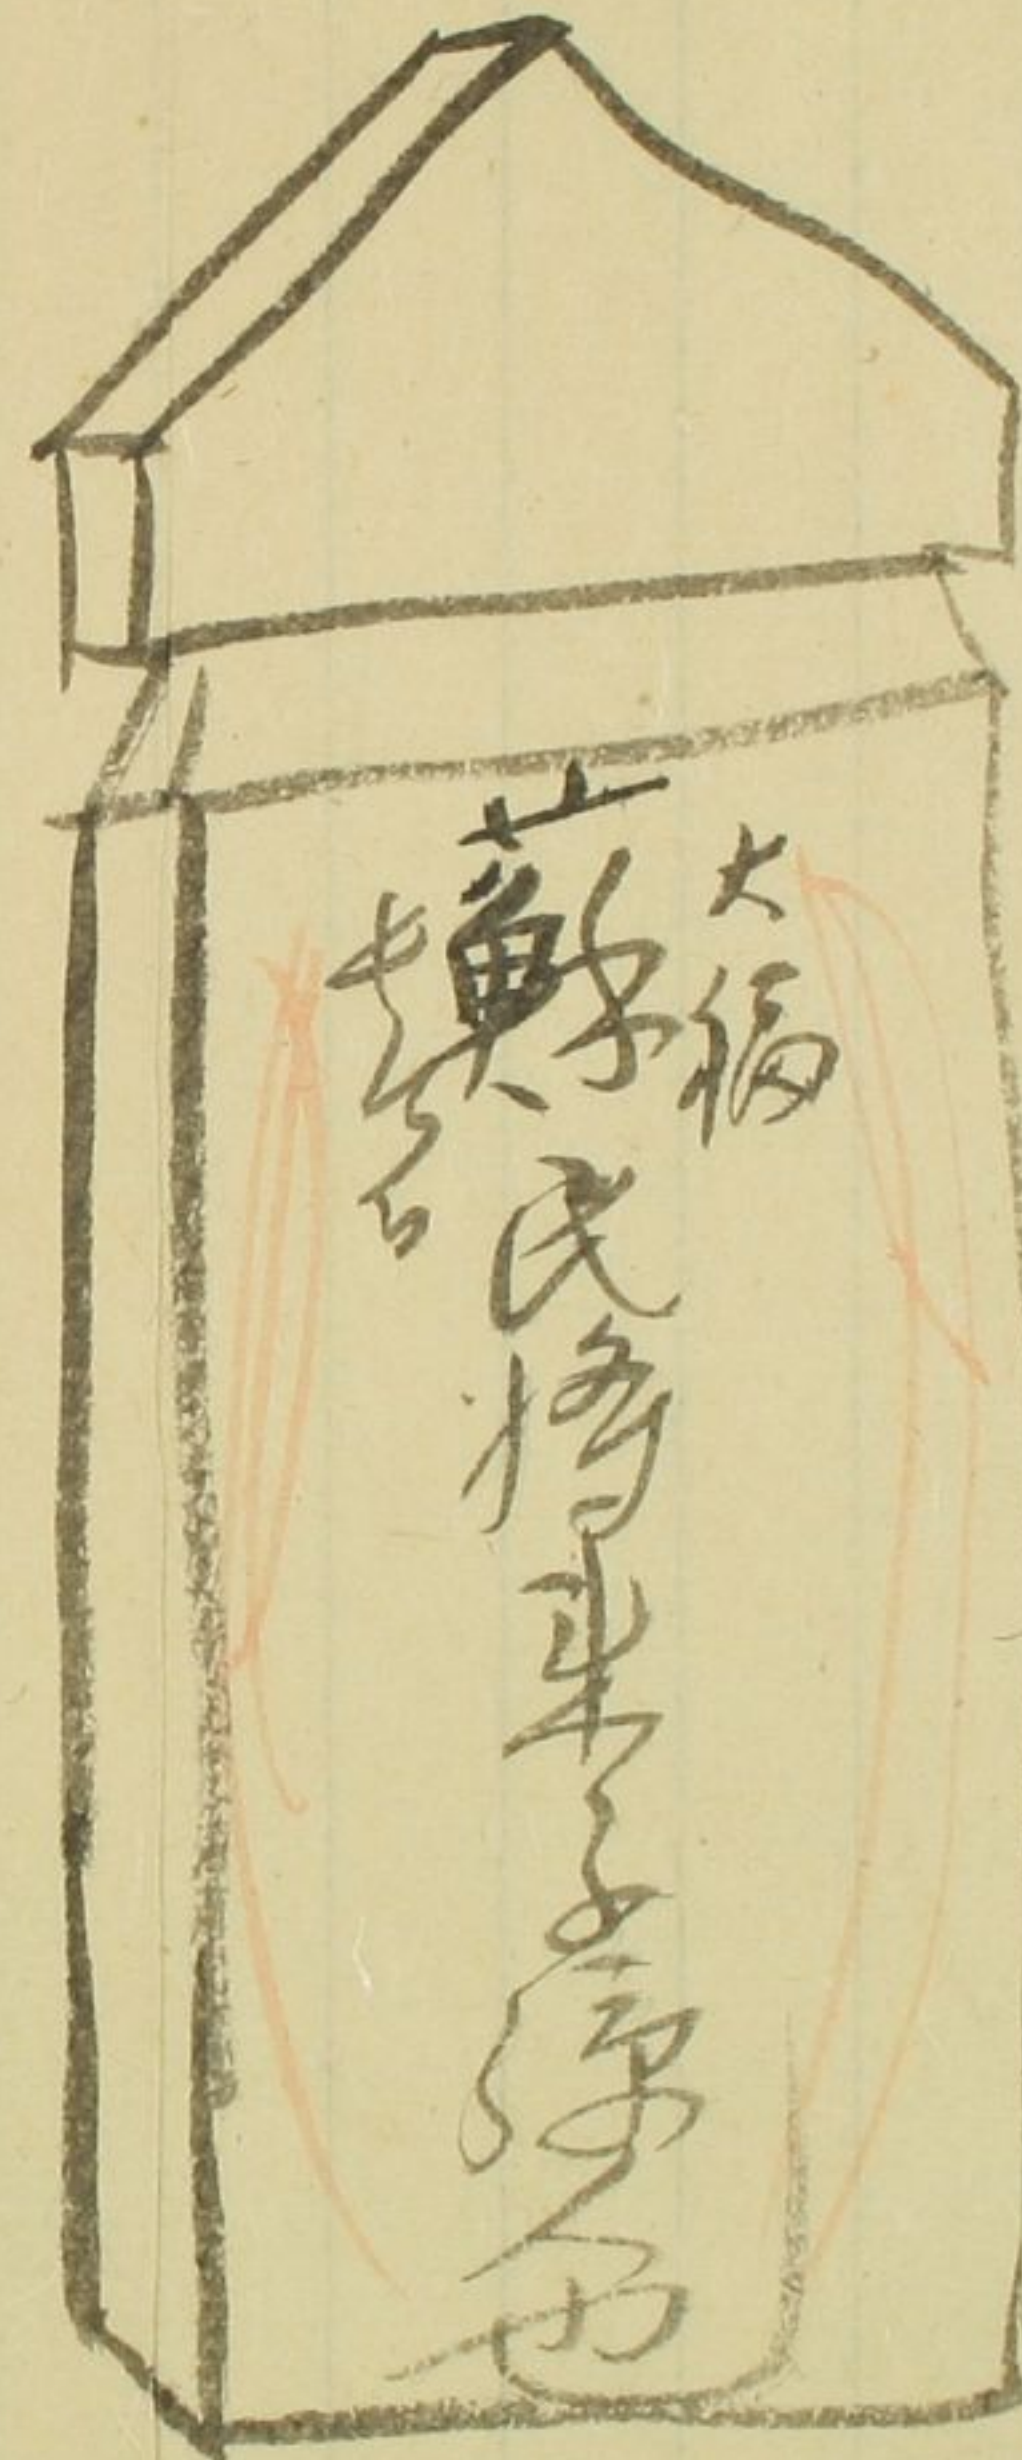 大福
蘇民将来子孫也
長者